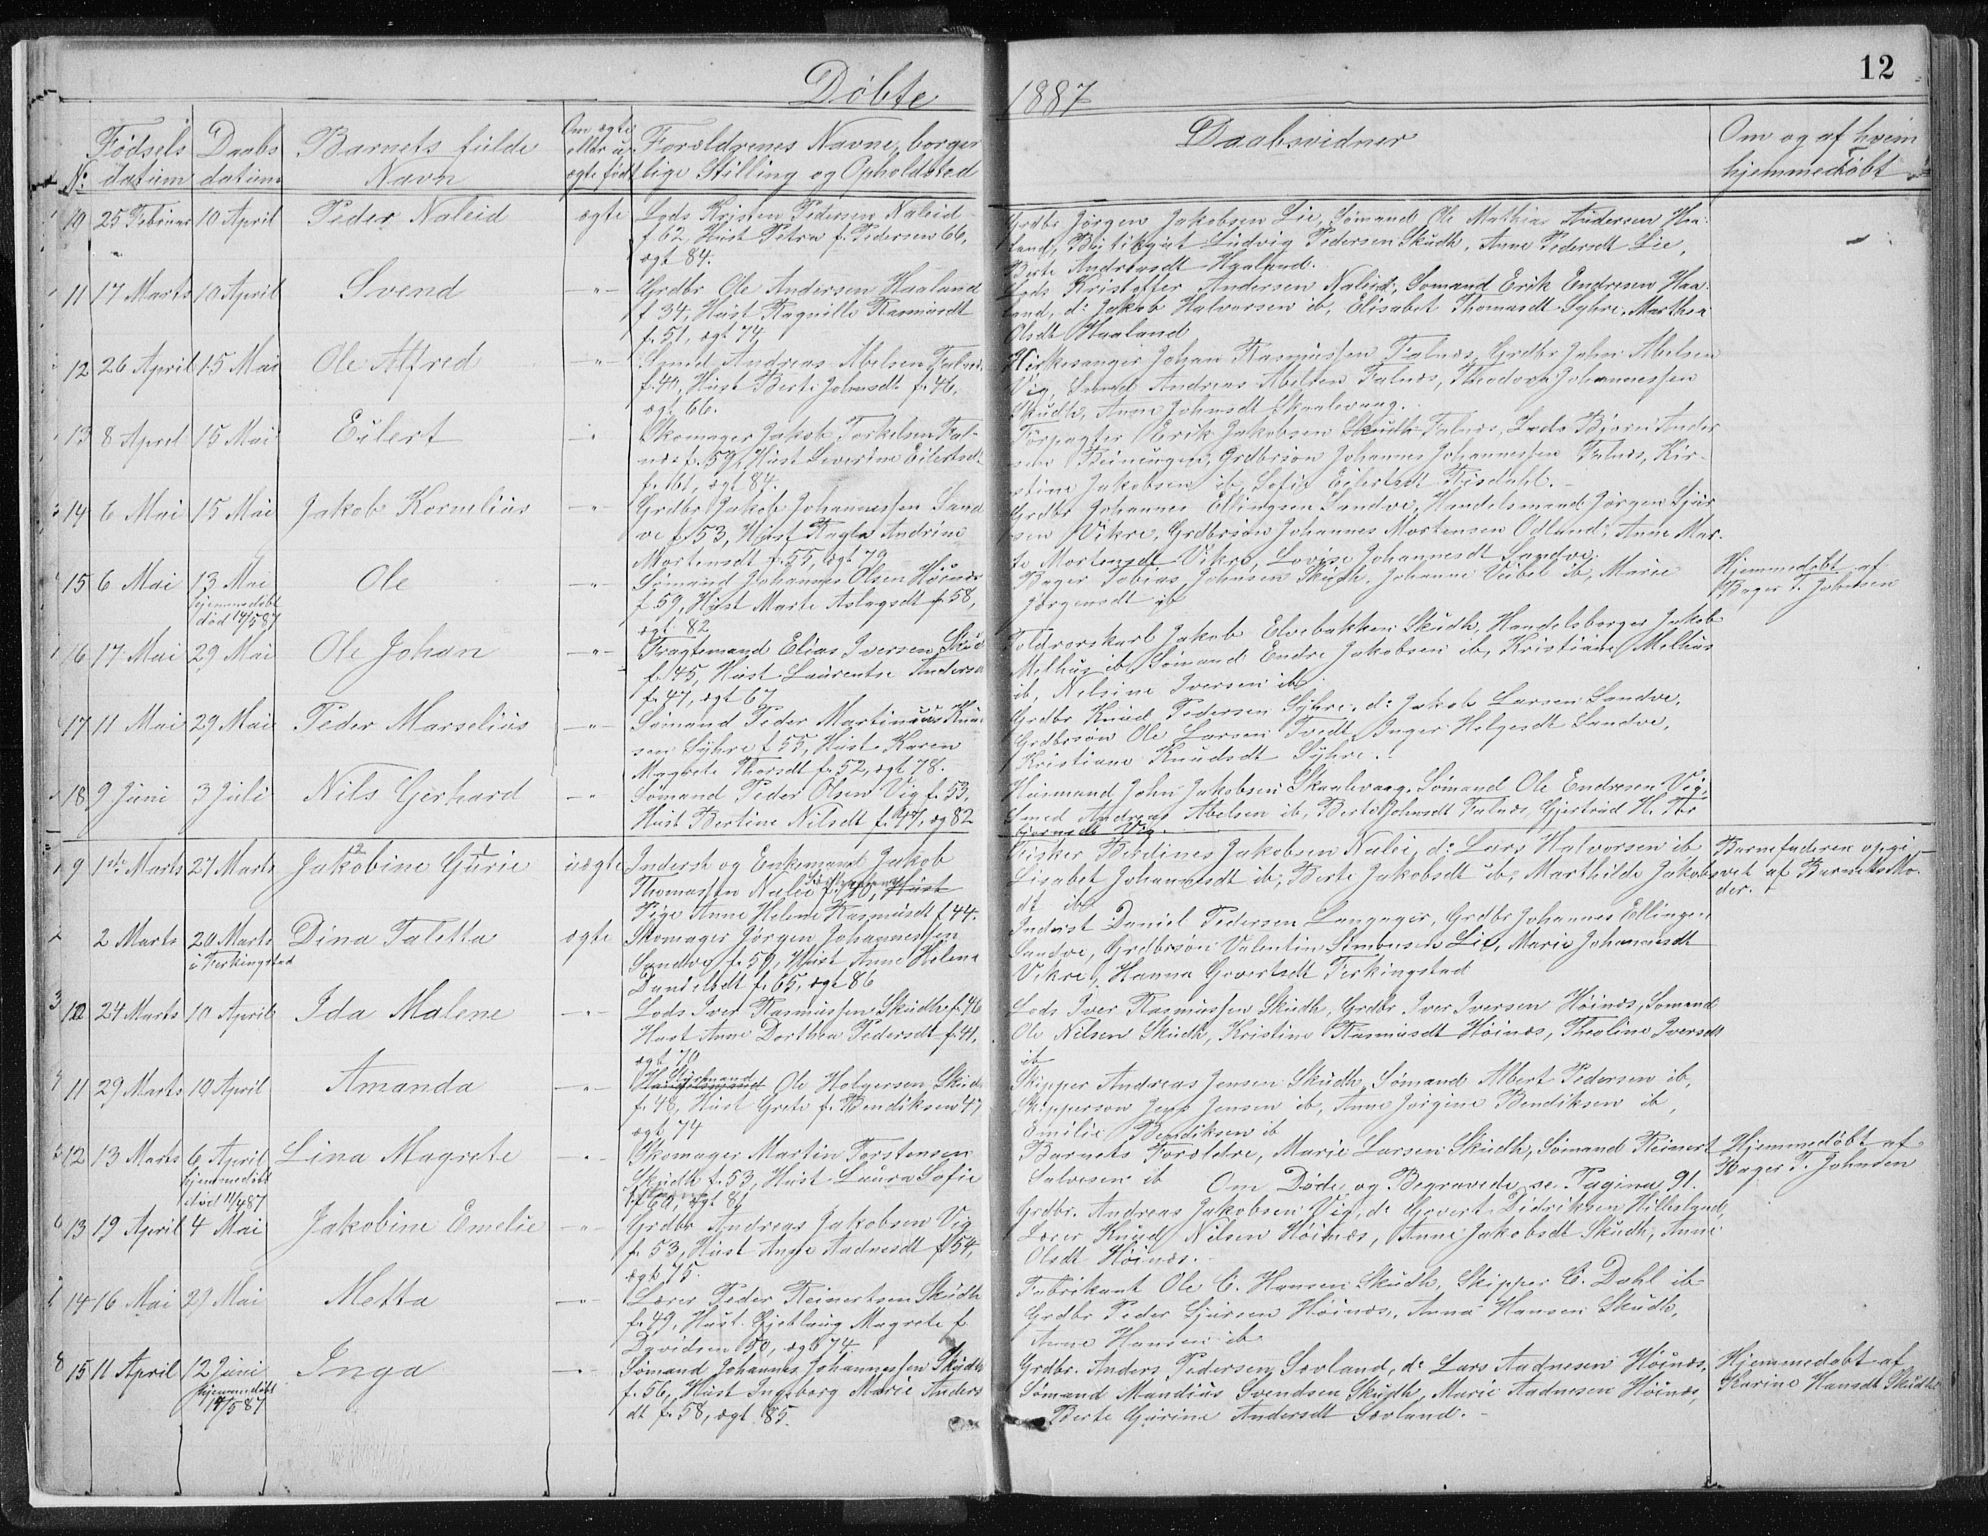 12
Døbte 1887
No Fødsels datum
Daabs datum
Barnets fulde Navn
Om ægte eller uægte født
Forældrenes Navne, borgerlige Stilling og Opholdsted
Daabsvidner
Om og af hvem hjemmedøbt
10 25 Februar 10 April Peder Naleid ægte Lods Kristen Pedersen Naleid
f 62, Hust Petra f. Pedersen 66,
ægt 84.
Grdbr Jørgen Jakobsen Lie, Sømand Ole Mathias Andersen Haa-
land, Ludvig Pedersen Skudh, Anne Pedersdt Lie,
Berte Andreasdt Haaland.
11 17 Marts 10 April Svend -"- Grdbr Ole Andersen Haaland
f 34, Hust Ragnille Rasmusdt
f. 51, ægt 74
Lods Kristoffer Andersen Naleid, Sømand Erik Endresen Haa-
land, do Jakob Halvorsen ib, Elisabet Thomasdt Syhre, Martha
Olsdt Haaland
12 26 April 15 Mai Ole Alfred -"- Smed Andreas Abelsen Falnes
f. 40, Hust Berte Johnsdt f. 46,
ægt 66.
Kirkesanger Johan Rasmussen Falnæs, Grdbr John Abelsen
Vig, Smed Andreas Abelsen Falnæs, Theodora Johannessen
Skudh, Anne Johnsdt Skaalevaag.
13 8 April 15 Mai Eilert -"- Skomager Jakob Torkelsen Fal-
næs f. 59, Hust Severine Eilertsdt
f. 61, ægt 84.
Forpagter Erik Jakobsen Falnæs, Lods Bjørn Ander
sen Beiningen, Grdbrsøn Johannes Johannessen Falnæs, Kir-
stine Jakobsen ib, Sofie Eilertsdt Risdahl.
14 6 Mai 15 Mai Jakob Kornelius -"- Grdbr Jakob Johannessen Sand
ve f. 53, Hust Ragla Andrine
Mortensdt f. 55, ægt 79
Grdbr Johannes Ellingsen Sandve, Handelsmand Jørgen Sjur
sen Vikre, Grdbrsøn Johannes Mortensen Odland, Anne Mar-
te Mortensdt Vikre, Lovise Johannesdt Sandve.
15 6 Mai 13 Mai Ole -"- Sømand Johannes Olsen Høinæs
hjemmedøbt
død 14/5 87
f 59, Hust Marte Aslagsdt f 58,
ægt. 82
Bager Tobias Johnsen Skudh, Johanne Vibel ib, Marie
Jørgensdt ib
Hjemmedøbt af
Bager T. Johnsen
16 17 Mai 29 Mai Ole Johan -"- Fragtemand Elias Iversen Skud
f. 45, Hust Laurentse Andersd
f. 47, ægt 67
Toldrorskarl Jakob Elvebakken Skudh, Handelsborger Jakob
Melhus ib, Sømand Endre Jakobsen ib, Kristiane Melhus
ib, Nelsine Iversen ib.
17 11 Mai 29 Mai Peder Marselius -"- Sømand Peder Martinius Knud
sen Syhre f 55, Hust. Karen
Magrete Thorsdt f. 52, ægt 78.
Grdbr Knud Pedersen Syhre, do Jakob Larsen Sandve,
Grdbrsøn Ole Larsen Tvedt, Inger Helgesdt Sandve,
Kristiane Knudsdt Syhre.
18 9 Juni 3 Juli Nils Gerhard -"- Sømand Peder Olsen Vig f. 53,
Hust Bertine Nilsdt f. 47, æg 82
Husmand John Jakobsen Skaalevaag, Sømand Ole Endresen Vig,
Smed Andreas Abelsen ib, Berte Johnsdt Falnæs, Gjertrud H. Tor
bjørnsdt Vig.
1 9 1ste Marts 27 Marts Jakobine Gurie uægte Inderst og Enkemand Jakob
Thomassen Nalei f. 40, Hust
Pige Anne Helene Rasmusdt f 44.
Fisker Berdines Jakobsen Nalei, do Lars Halvorsen ib
Lisabet Johannesdt ib, Berte Jakobsdt ib, Marthilde Jakobs
dt ib
Barnefaderen opgi
vet af Barnets Mo
der.
2 2 Marts 20 Marts Dina Taletta ægte Skomager Jørgen Johannessen
i Ferkingstad
Sandve f. 59, Hust Anne Helena
Danielsdt f. 65, ægt 86
Inderst Daniel Pedersen Langager, Grdbr Johannes Ellingsen
Sandve, Grdbrsøn Valentin Simonsen Lie, Marie Johannesdt
Vikre, Hanna Govertsdt Ferkingstad
3 10 24 Marts 10 April Ida Malene -"- Lods Iver Rasmussen Skudh f. 46
Hust Anne Dorthea Pedersdt f. 41,
ægt 70
Lods Iver Rasmussen Skudh, Grdbr Iver Iversen Høinæs, Sømand
Ole Nilsen Skudh, Kristine Rasmusdt Høinæs, Theoline Iversdt
ib
11 29 Marts 10 April Amanda -"- Styrmand Ole Holgersen Skud
f. 48, Hust Grete f. Bendiksen 47
ægt 74
Skipper Andreas Jensen Skudh, Sømand Albert Pedersen ib,
Skippersøn Jens Jensen ib, Anne Jørgine Bendiksen ib,
Emilie Bendiksen ib
12 13 Marts 6 April Lina Magrete -"- Skomager Martin Torstensen
hjemmedøbt
død 11/4 87
Skudh f. 53, Hust Laura Sofie
f 60, ægt 81
Barnets Forældre, Marie Larsen Skudh, Sømand Reinert
Salvesen ib Om Døde og Begravede se Pagina 91.
Hjemmedøbt af
Bager T. Johnsen
6 13 19 April 4 Mai Jakobine Emelie -"- Grdbr Andreas Jakobsen Vig
f. 53, Hust Anne Aadnesdt f 54,
ægt 75.
Grdbr. Andreas Jakobsen Vig, do Govert Didriksen Hillesland,
Lærer Knud Nilsen Høinæs, Anne Jakobsdt Skudh, Anne
Olsdt Høinæs.
14 16 Mai 29 Mai Metta -"- Lærer Peder Reinertsen Skudh
f. 49, Hust. Gjeblaug Magrete f
Davidsen 50, ægt 74
Fabrikant Ole C. Hansen Skudh, Skipper C. Dahl ib
Grdbr Peder Sjursen Høinæs, Anna Hansen Skudh,
Anne Hansen ib
8 15 11 April 12 Juni Inga -"- Sømand Johannes Johannessen Skudh
hjemmedøbt
14/5 87
f. 56, Hust Ingeborg Marie Anders
dt f. 58, ægt. 85.
Grdbr. Anders Pedersen Sævland, do Lars Aadnesen Høinæs,
Sømand Mandius Svendsen Skudh, Marie Aadnesen Høinæs,
Berte Gurine Andersdt Sævland.
Hjemmedøbt af
Karine Hansdt Skudh